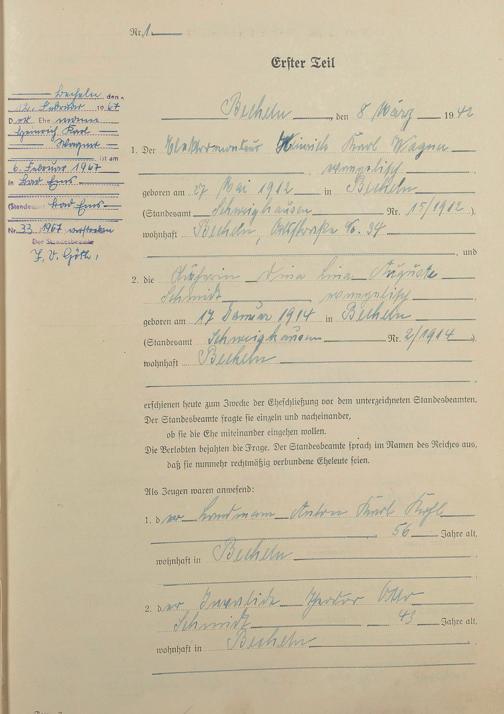 Nr. 1
Erster Teil
Becheln den
12. Februar 1967
Der Ehemann
Heinrich Karl
Wagner
ist am
6. Februar 1967
in Bad Ems
(Standesamt Bad Ems
Nr. 33/1967 verstorben
Der Standesbeamte
J. V.
Becheln, den 8 März 1942
1. Der Elektromonteur Heinrich Karl Wagner
, evangelisch
geboren am 27 Mai 1912 in Becheln
(Standesamt Schweighausen Nr. 15/1912),
wohnhaft Becheln, No. 34
, und
2. die Dina Lina Auguste
Schmidt evangelisch
geboren am 17 Januar 1914 in Becheln
(Standesamt Schweighausen Nr. 2/1914),
wohnhaft Becheln
erschienen heute zum Zwecke der Eheschließung vor dem unterzeichneten Standesbeamten.
Der Standesbeamte fragte sie einzeln und nacheinander,
ob sie die Ehe miteinander eingehen wollen.
Die Verlobten bejahten die Frage. Der Standesbeamte sprach im Namen des Reiches aus,
daß sie nunmehr rechtmäßig verbundene Eheleute seien.
Als Zeugen waren anwesend:
1. der Landmann Anton Karl
56 Jahre alt,
wohnhaft in Becheln
2. der Invalide Theodor Otto
Schmidt 43 Jahre alt,
wohnhaft in Becheln